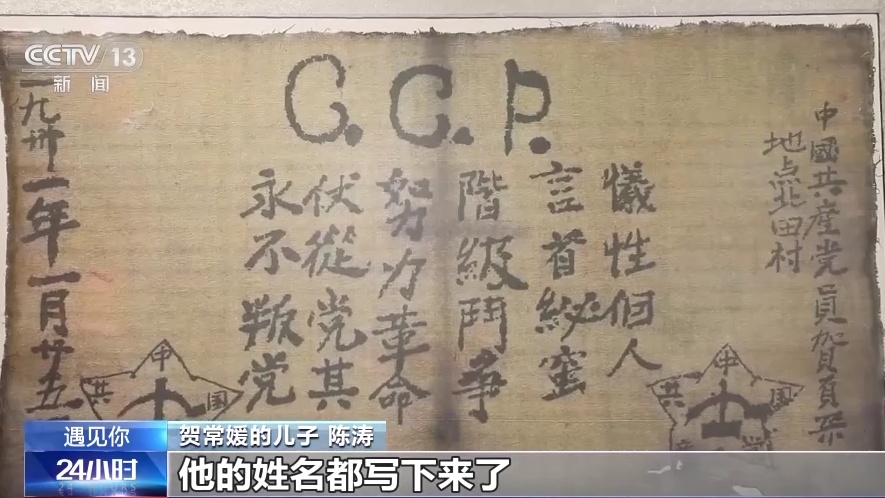 CCTV 13
新闻
C.C.P.
中國共產党員賀頁朵
地点北田村
犧性個人
言首秘蜜
階級鬥爭
努力革命
伏從党其
永不叛党
一九卅一年一月廿五
中
共
国
中
共
遇见你
24小时
贺常媛的儿子 陈涛
他的姓名都写下来了